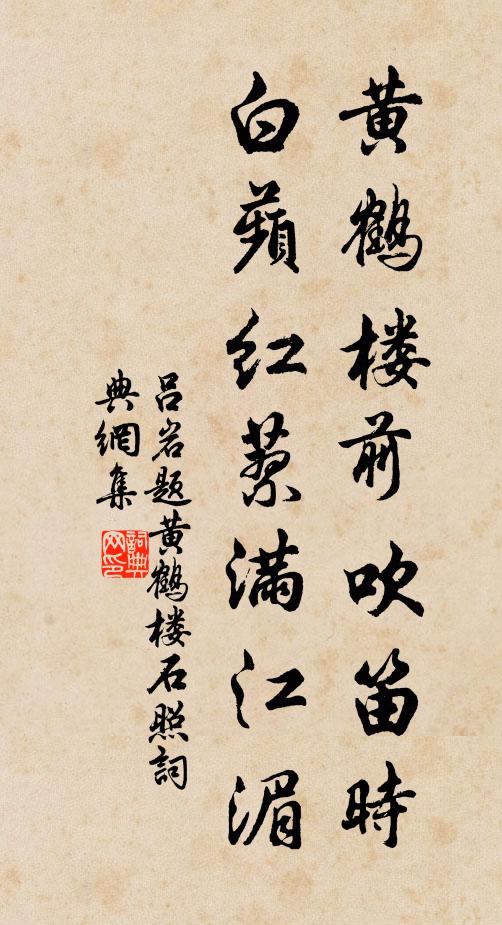 黄鶴楼前吹笛時
白蘋红蓼满江湄
吕岩题黄鶴楼石照詞
典網集
詞典网印